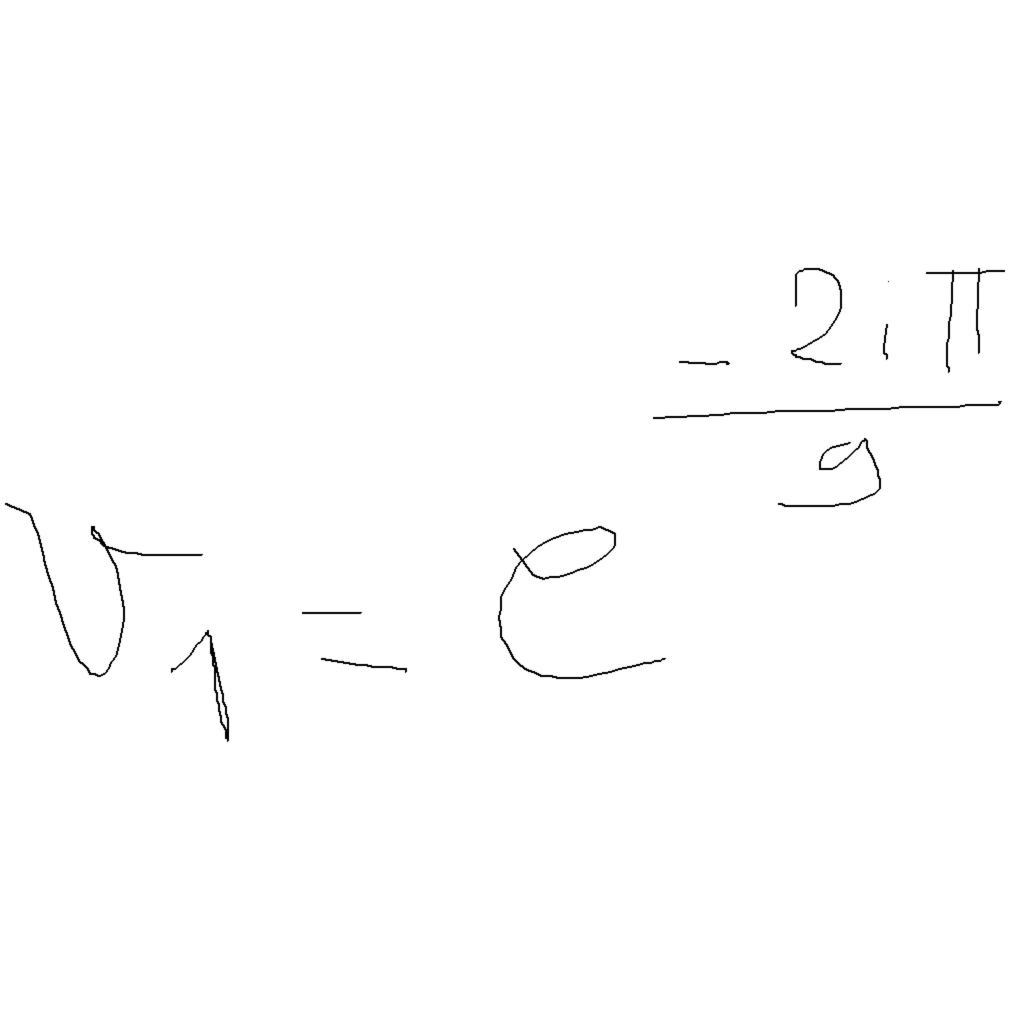 v₁ = e^(-2iπ/9)